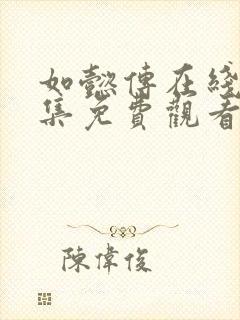 如懿傳在綫
集免費觀看
陳偉俊